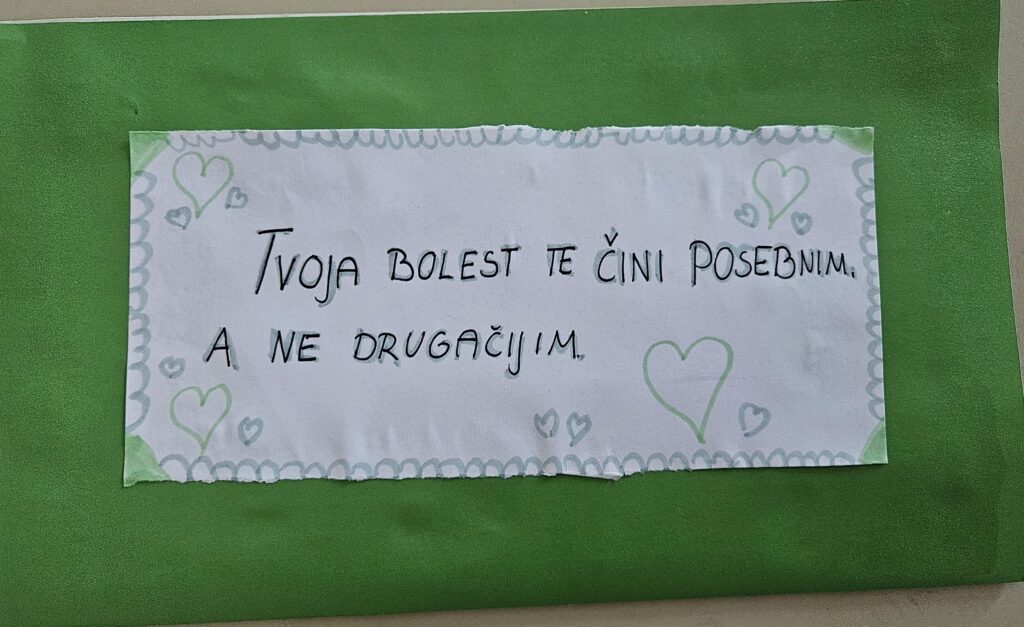 TVOJA BOLEST TE ČINI POSEBNIM.
A NE DRUGAČIJIM.